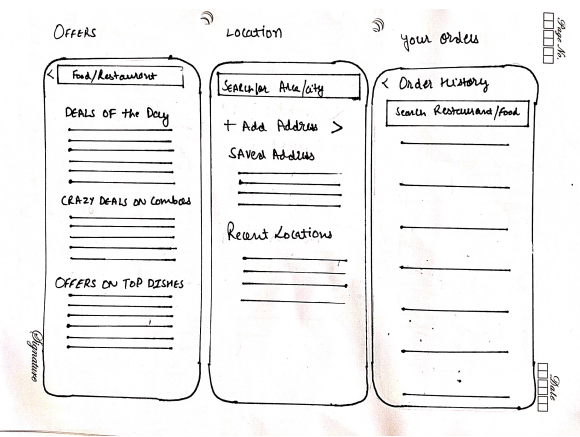 OFFERS
< Food/Restaurant
DEALS OF the Day
CRAZY DEALS ON Combos
OFFERS ON TOP DISHES
Location
Search for Area/city
+ Add Address >
SAVED Address
Recent Locations
your orders
< Order History
Search Restaurant/Food
Page No.
Signature
Date